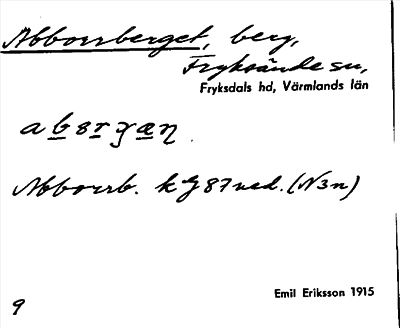 Abborrberget, berg,
Fryksände sn,
Fryksdals hd, Värmlands län
Abborrb. k G 87 ned. (N3n)
Emil Eriksson 1915
9